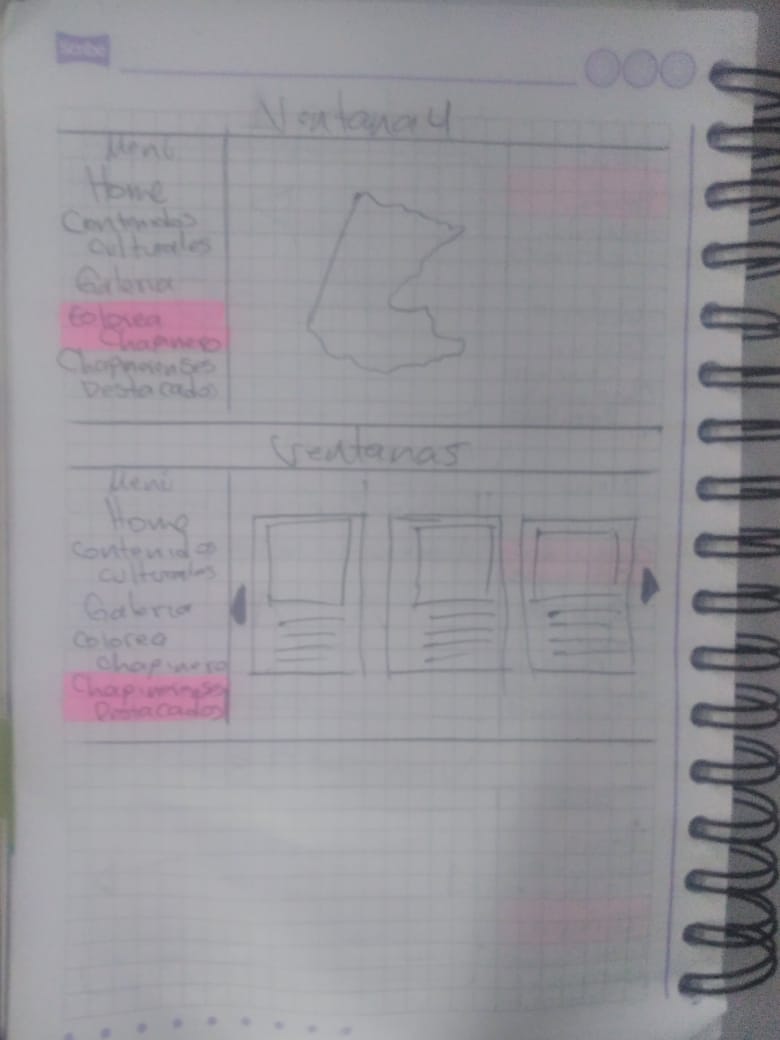 Scribe
Ventana 4
Menú
Home
Contenidos
culturales
Galeria
Colorea
Chapinero
Chapinerenses
Destacados
Ventana 5
Menú
Home
Contenidos
culturales
Galeria
Colorea
Chapinero
Chapinerenses
Destacados